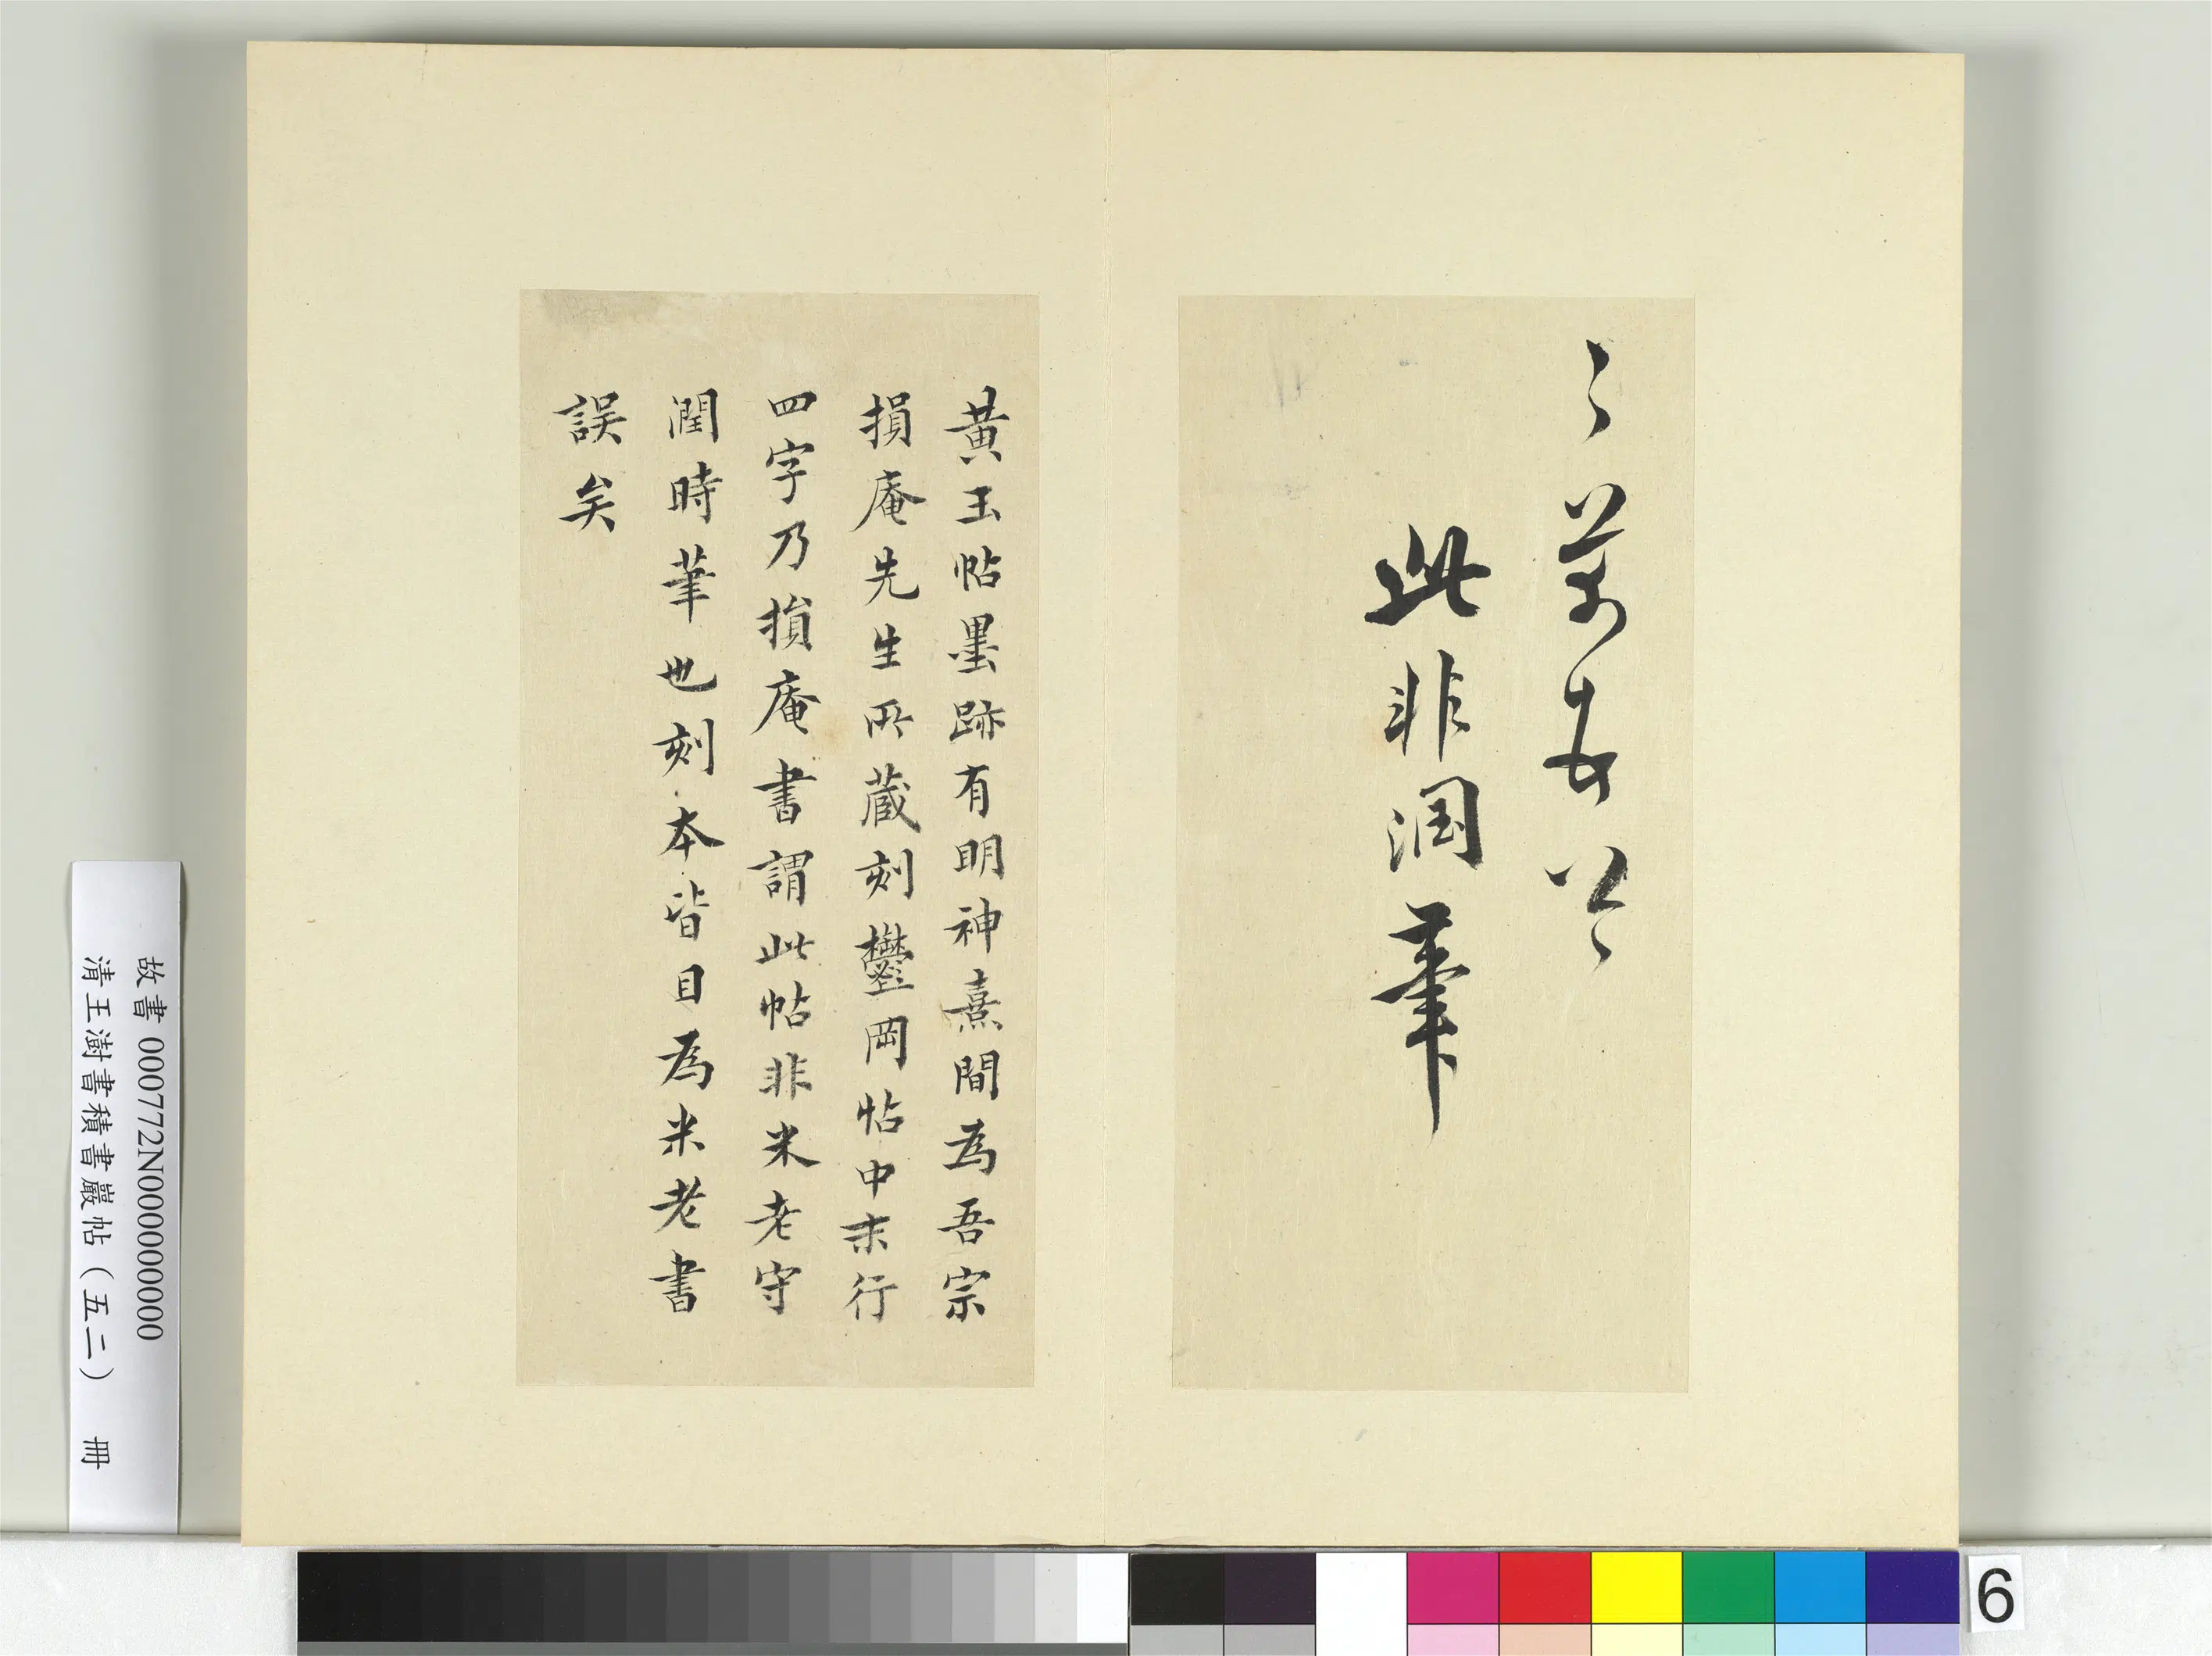 此非潤筆
黃玉帖墨跡有明神熹間為吾宗
損庵先生所藏刻鬱岡帖中末行
四字乃損庵書謂此帖非米老守
潤時筆也刻本皆目為米老書
誤矣
故書 000772N000000000
清王澍書積書巖帖(五二) 冊
6